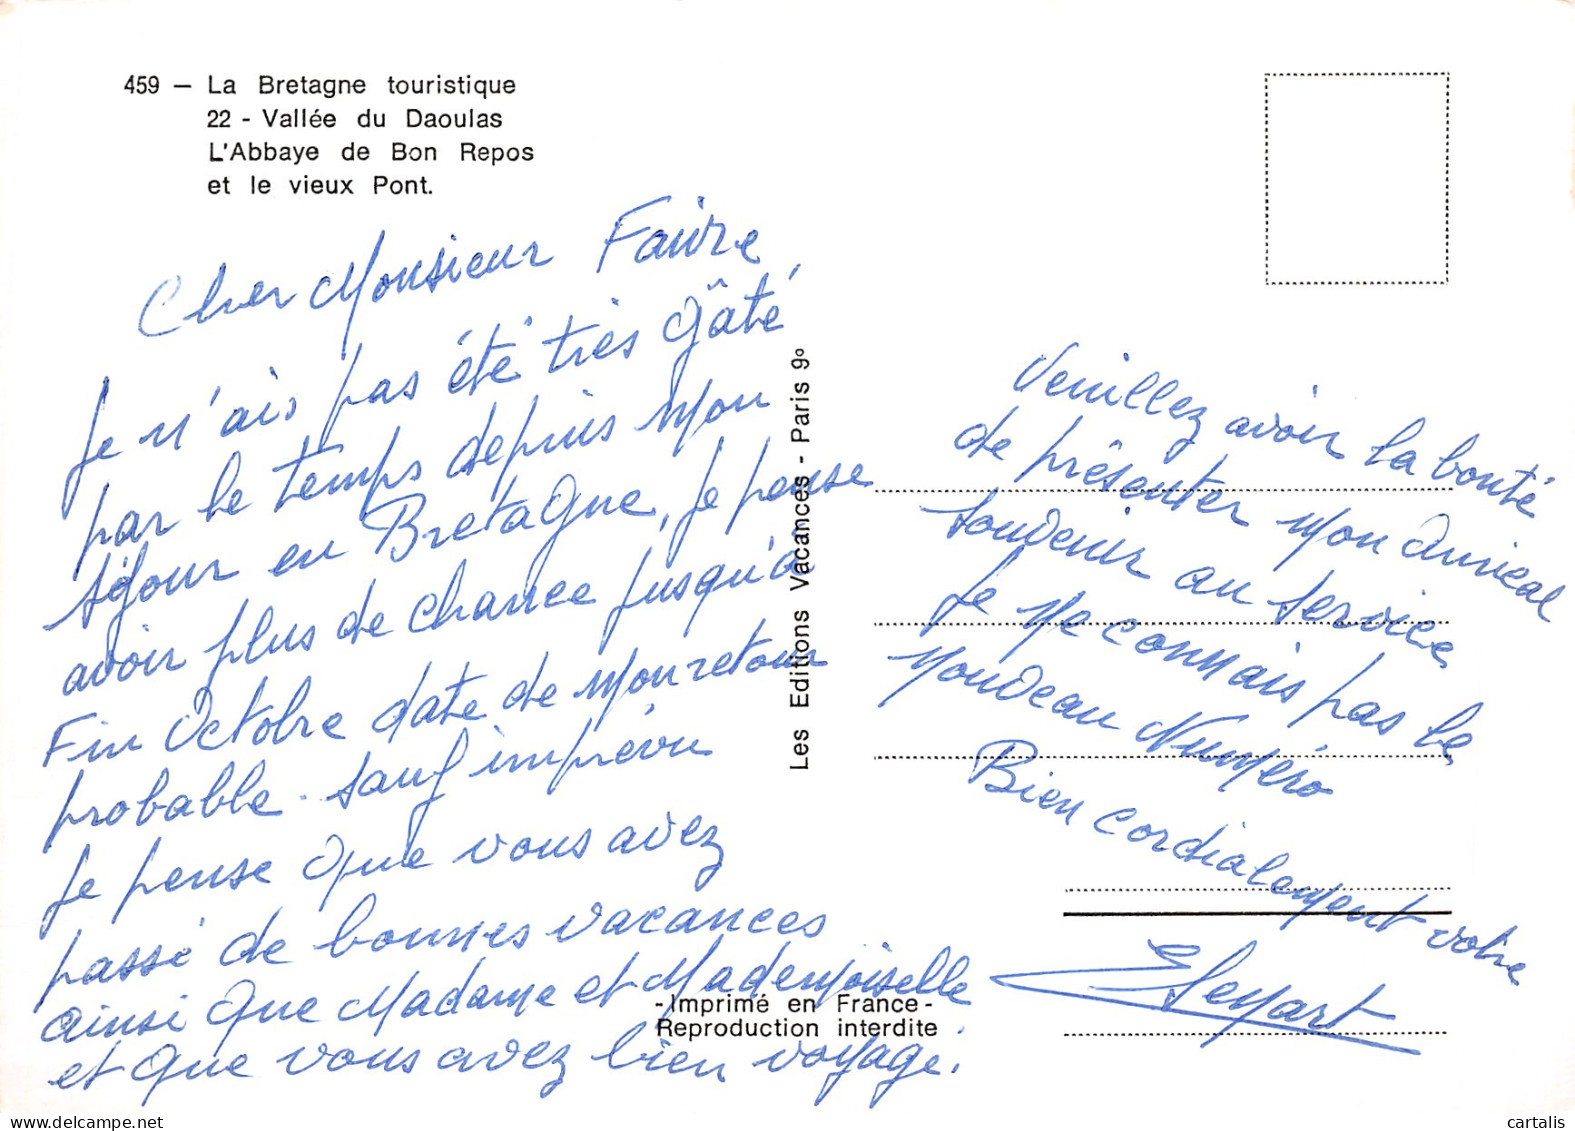 459 — La Bretagne touristique
22 - Vallée du Daoulas
L'Abbaye de Bon Repos
et le vieux Pont.
Cher Monsieur Faivre,
Je n'ais pas été très gâté
par le temps depuis mon
séjour en Bretagne, je pense
avoir plus de chance jusqu'à
Fin Octobre date de mon retour
probable. sauf imprévu
Je pense que vous avez
passé de bonnes vacances
ainsi que Madame et Mademoiselle
et que vous avez bien voyagé.
Les Editions Vacances - Paris 9e
-Imprimé en France-
Reproduction interdite
Veuillez avoir la bonté
de présenter mon amical
souvenir au service
Je ne connais pas le
nouveau Numéro
Bien cordialement votre
cartalis